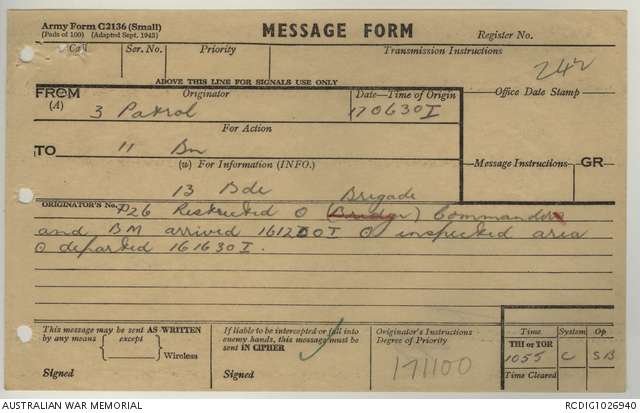 Army Form C2136 (Small)
(Pads of 100) (Adapted Sept. 1943)
MESSAGE FORM
Register No.
Call Ser. No. Priority Transmission Instructions
242
ABOVE THIS LINE FOR SIGNALS USE ONLY
FROM Originator Date—Time of Origin Office Date Stamp
(A) 3 Patrol 170630I
For Action
TO 11 Bn
(W) For Information (INFO.) Message Instructions GR
13 Bde Brigade
ORIGINATOR'S No. P26 Restricted O (Bridge) Commander
and BM arrived 161200I O inspected area
O departed 161630I.
This message may be sent AS WRITTEN
by any means except
Wireless
Signed
If liable to be intercepted or fall into
enemy hands, this message must be
sent IN CIPHER
Signed
Originator's Instructions
Degree of Priority
171100
Time System Op
THI or TOR
1055 C SB
Time Cleared
AUSTRALIAN WAR MEMORIAL RCDIG1026940